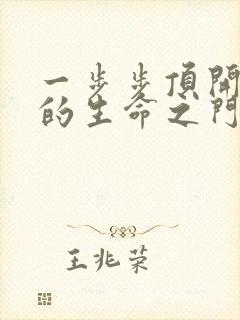 一步步頂開
的生命之門
王兆荣